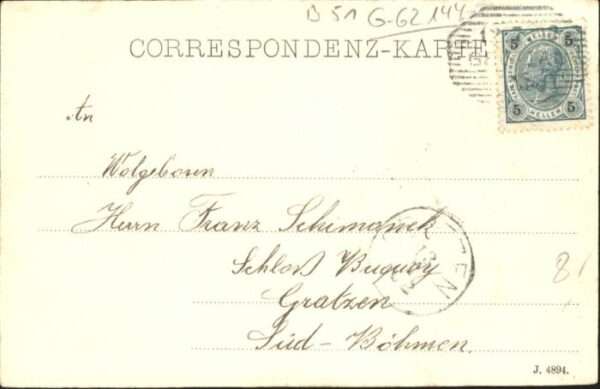 B 51 G-62 144
CORRESPONDENZ-KARTE
5 HELLER 5
5 HELLER 5
An
Wolgeboren
Herrn Franz Schimanek
Schloß Buquoy
TZEN
Gratzen
Süd-Böhmen.
8/
J. 4894.